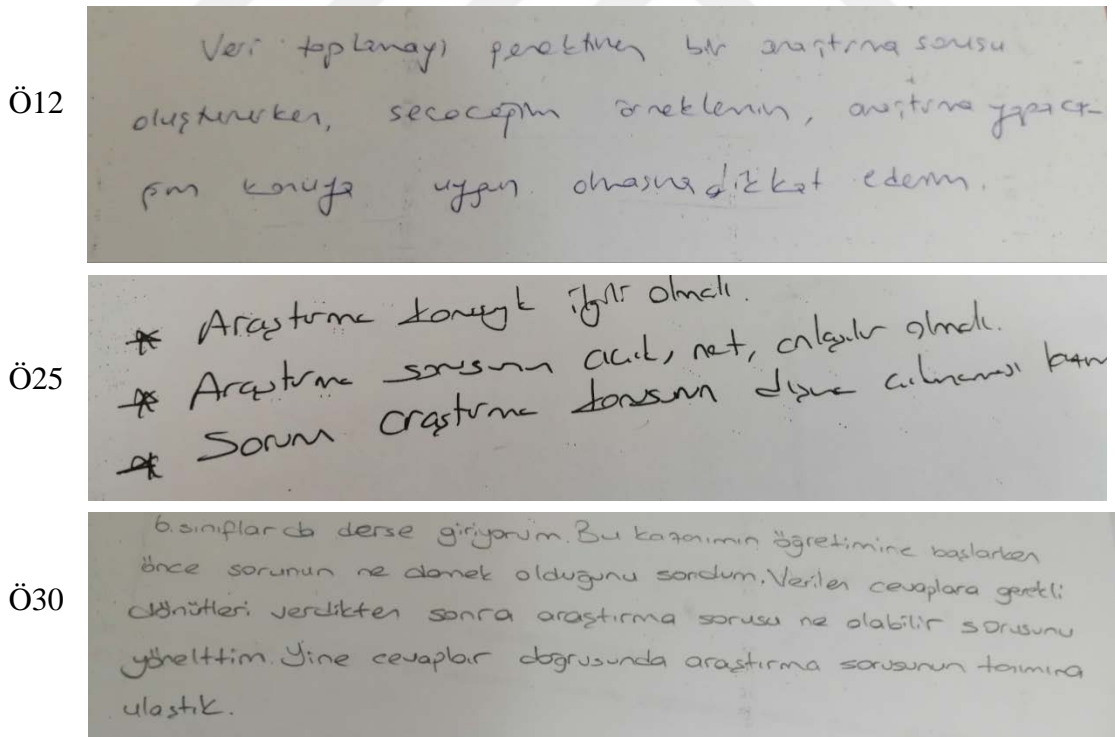 Ö12
Veri toplamayı gerektiren bir araştırma sorusu
oluştururken, seçeceğim örneklemin, araştırma yapaca-
ğım konuya uygun olmasına dikkat ederim.
Ö25
* Araştırma konuyla ilgili olmalı.
* Araştırma sorusunun açık, net, anlaşılır olmalı.
* Sorunun araştırma konusunun dışına
Ö30
6. sınıflarda derse giriyorum. Bu kazanımın öğretimine başlarken
önce sorunun ne demek olduğunu sordum. Verilen cevaplara gerekli
dönütleri verdikten sonra araştırma sorusu ne olabilir sorusunu
yönelttim. Yine cevaplar doğrusunda araştırma sorusunun tanımına
ulaştık.